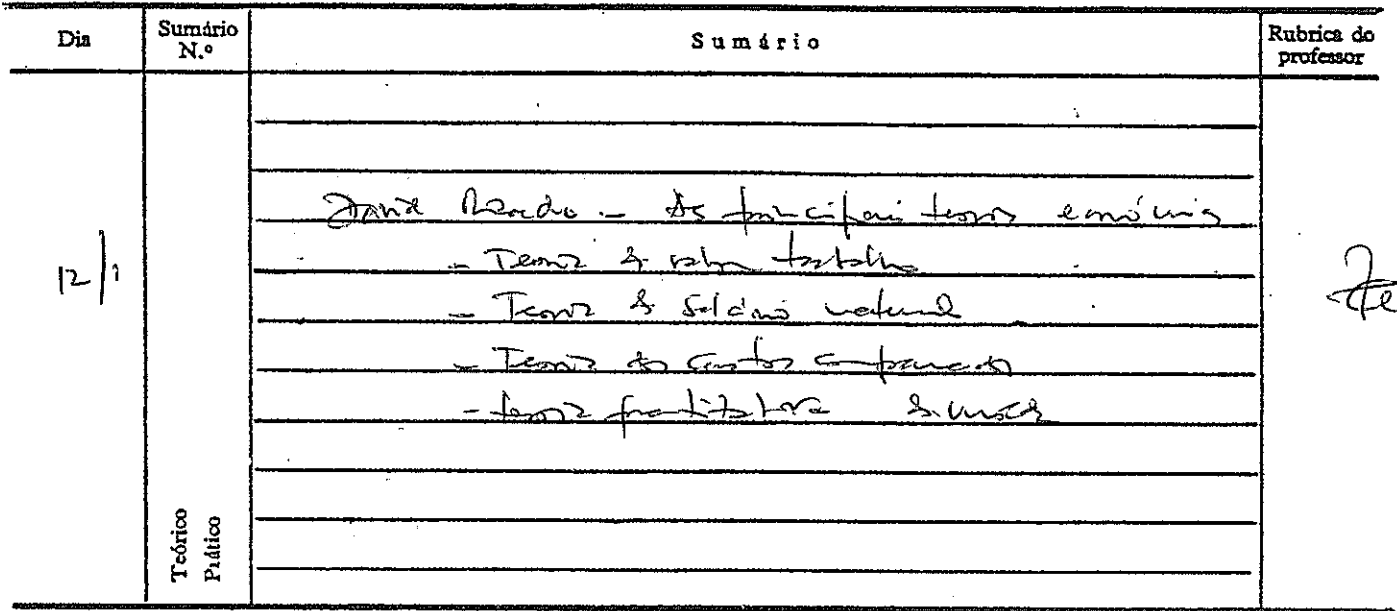 Dia
Sumário N.º
Sumário
Rubrica do professor
12/1
David Ricardo - As principais teorias económicas
- Teoria do valor trabalho
- Teoria do salário natural
- Teoria dos custos comparados
- Teoria quantitativa da moeda
Teórico
Prático